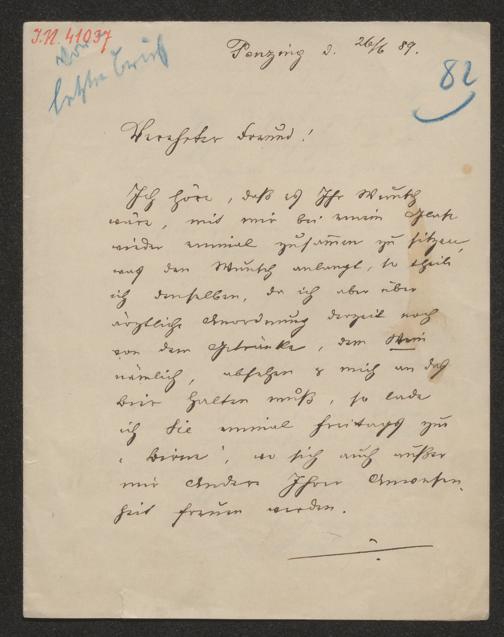 I.N. 41037
vor
letzter Brief
Penzing d. 26/6 89.
82
Verehrter Freund!
Ich höre, daß es Ihr Wunsch
wäre, mit mir bei einem Glase
wieder einmal zusammen zu sitzen
was den Wunsch anlangt, so theile
ich denselben, da ich aber über
ärztliche Anordnung derzeit noch
von dem Getränke, dem Wein
nämlich, absehen & mich an das
Bier halten muß, so lade
ich Sie einmal Freitags zur
'Birne', wo sich auch außer
mir Andere Ihrer Anwesen-
heit freuen werden.